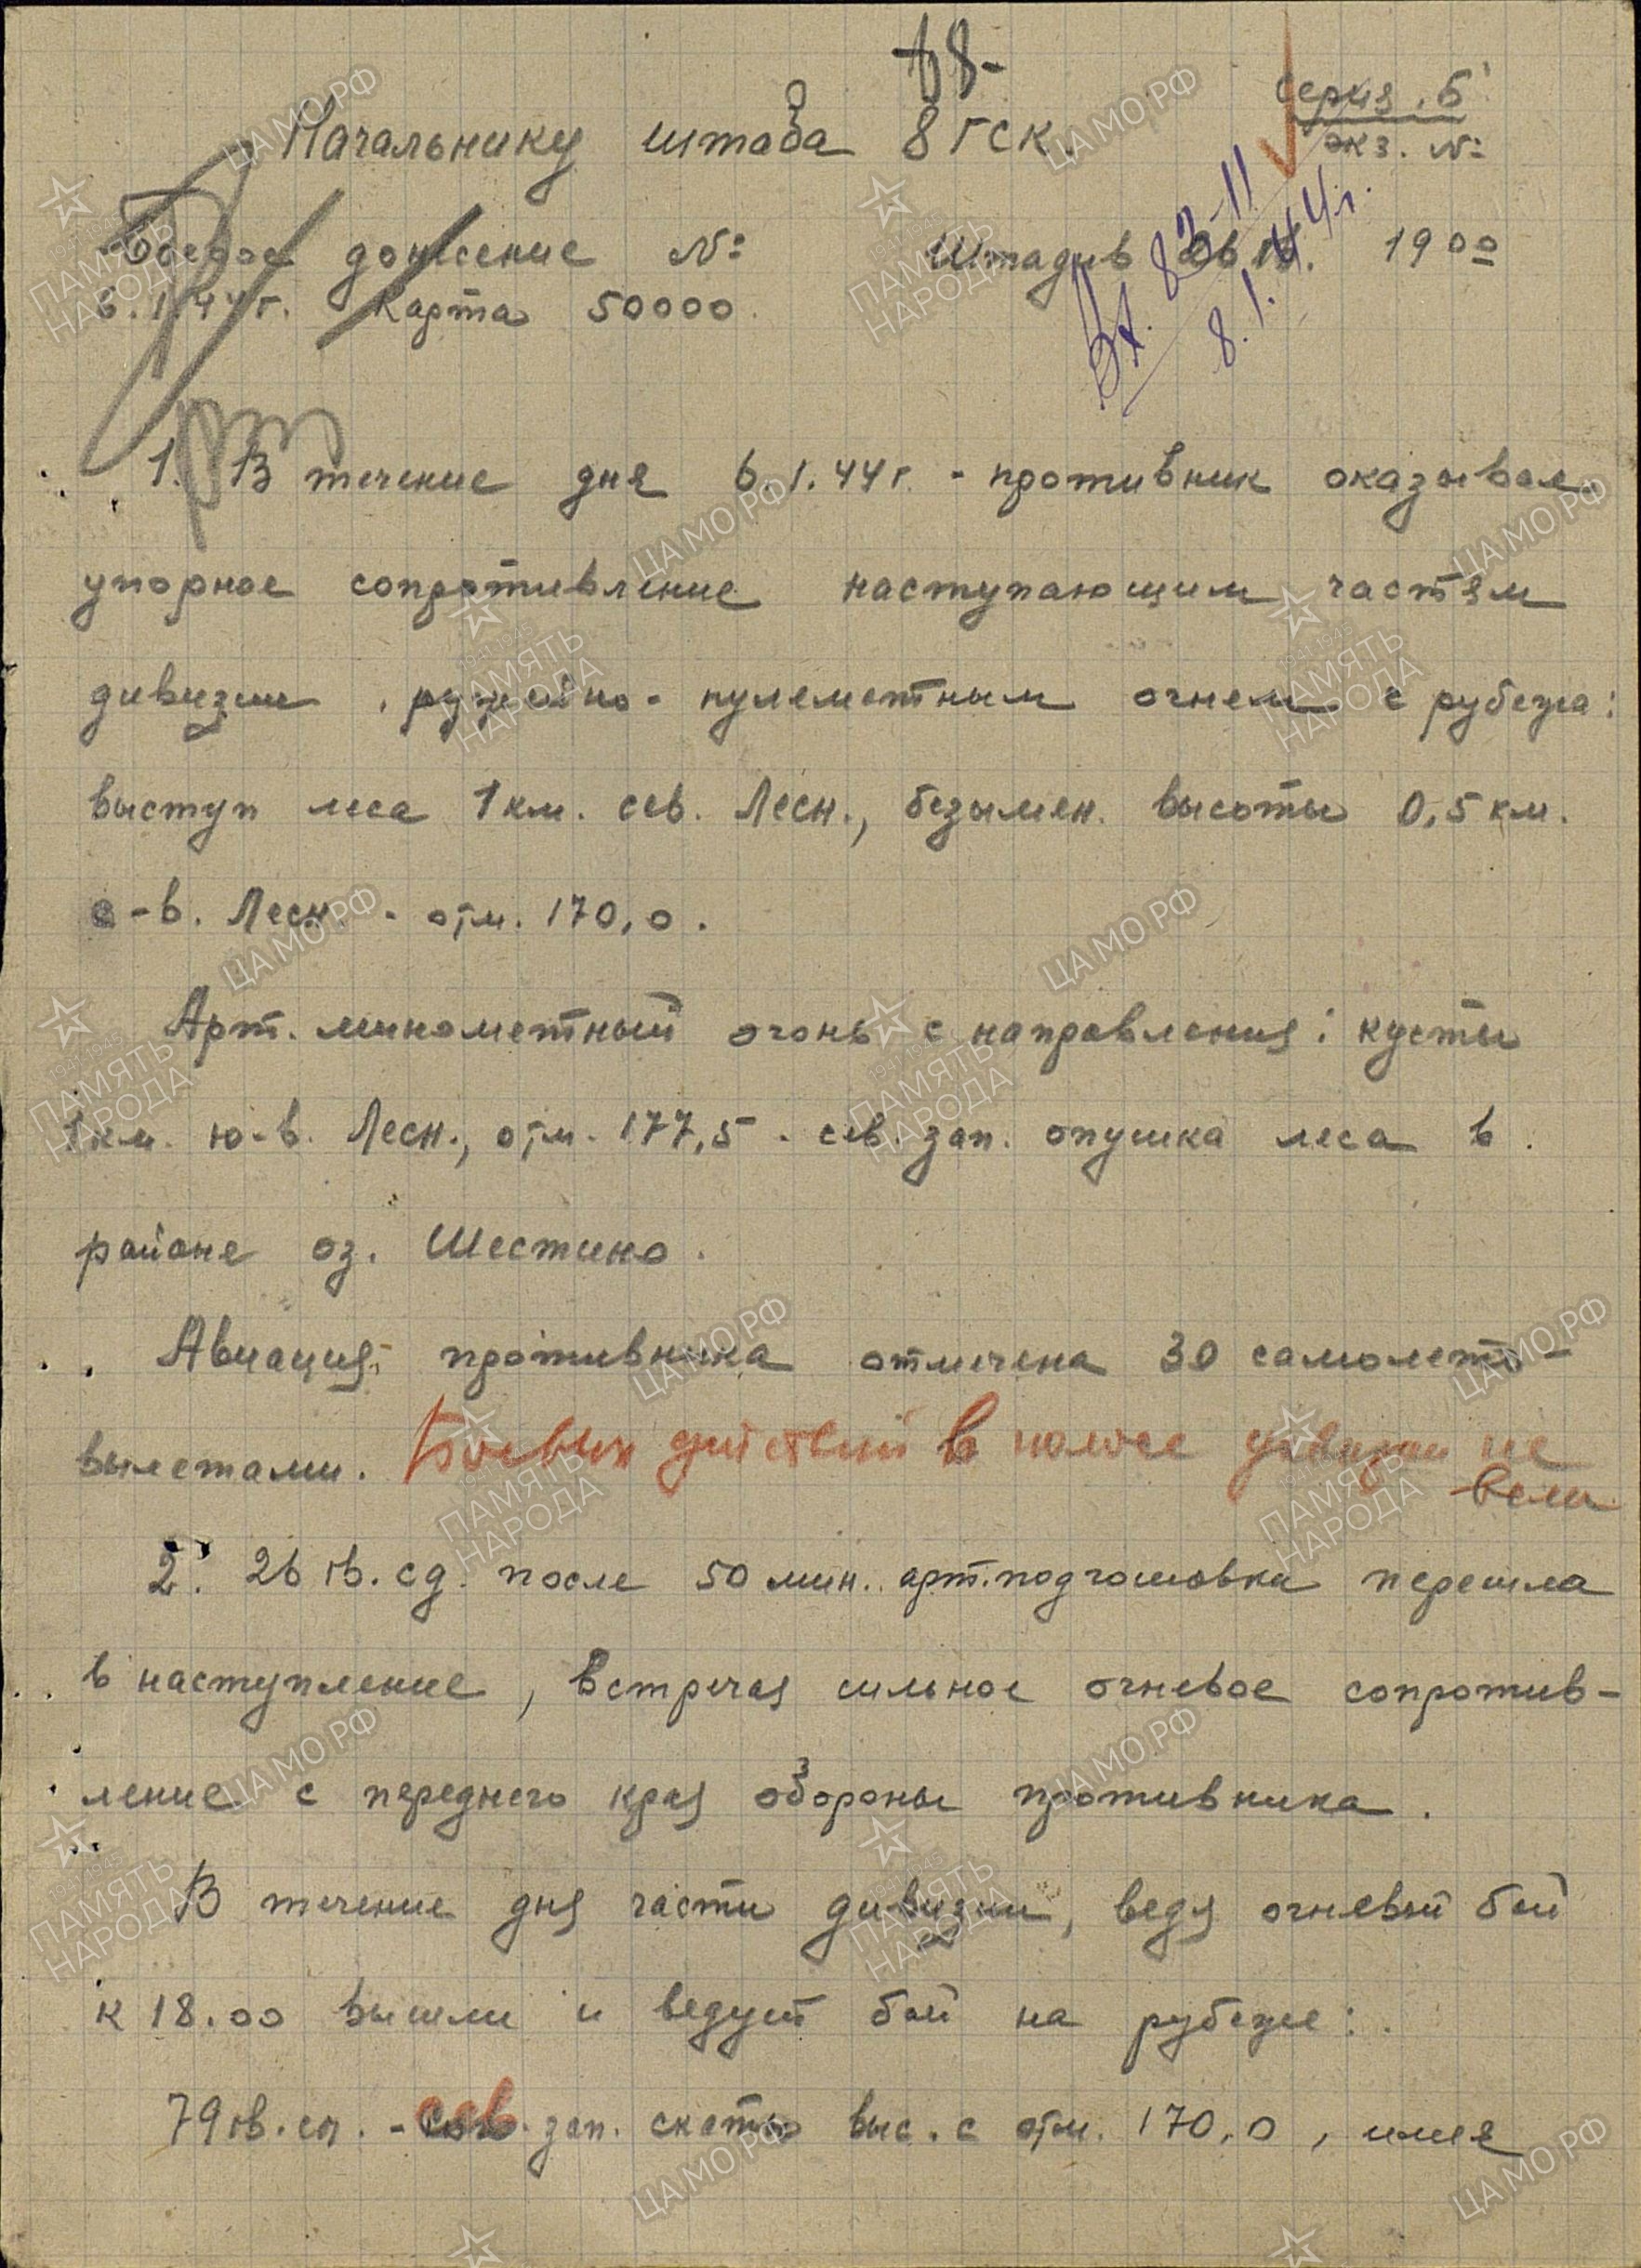 68-
серия. Б
экз. №
Начальнику штаба 8 ГСК.
Боевое донесение №
Штадив 26
19 00
6.1.44 г. Карта 50000.
Вх. 83-11
8.1.44 г.
1. В течение дня 6.1.44 г. - противник оказывал
упорное сопротивление наступающим частям
дивизии, ружейно-пулеметным огнем с рубежа:
выступ леса 1 км. сев. Лесн., безымен. высоты 0,5 км.
с-в. Лесн. - отм. 170,0.
Арт. минометный огонь с направления: кусты
1 км. ю-в. Лесн., отм. 177,5 - сев. зап. опушка леса в
районе оз. Шестино.
Авиация противника отмечена 30 самолето-
вылетами. Боевых действий в полосе дивизии не
вела
2. 26 гв. сд. после 50 мин. арт. подготовки перешла
в наступление, встречая сильное огневое сопротив-
ление с переднего края обороны противника.
В течение дня части дивизии, ведя огневой бой
к 18.00 вышли и ведут бой на рубеже:
79 гв. сп. - сев. зап. скаты выс. с отм. 170,0, имея
ЦАМО РФ
1941-1945
ПАМЯТЬ
НАРОДА